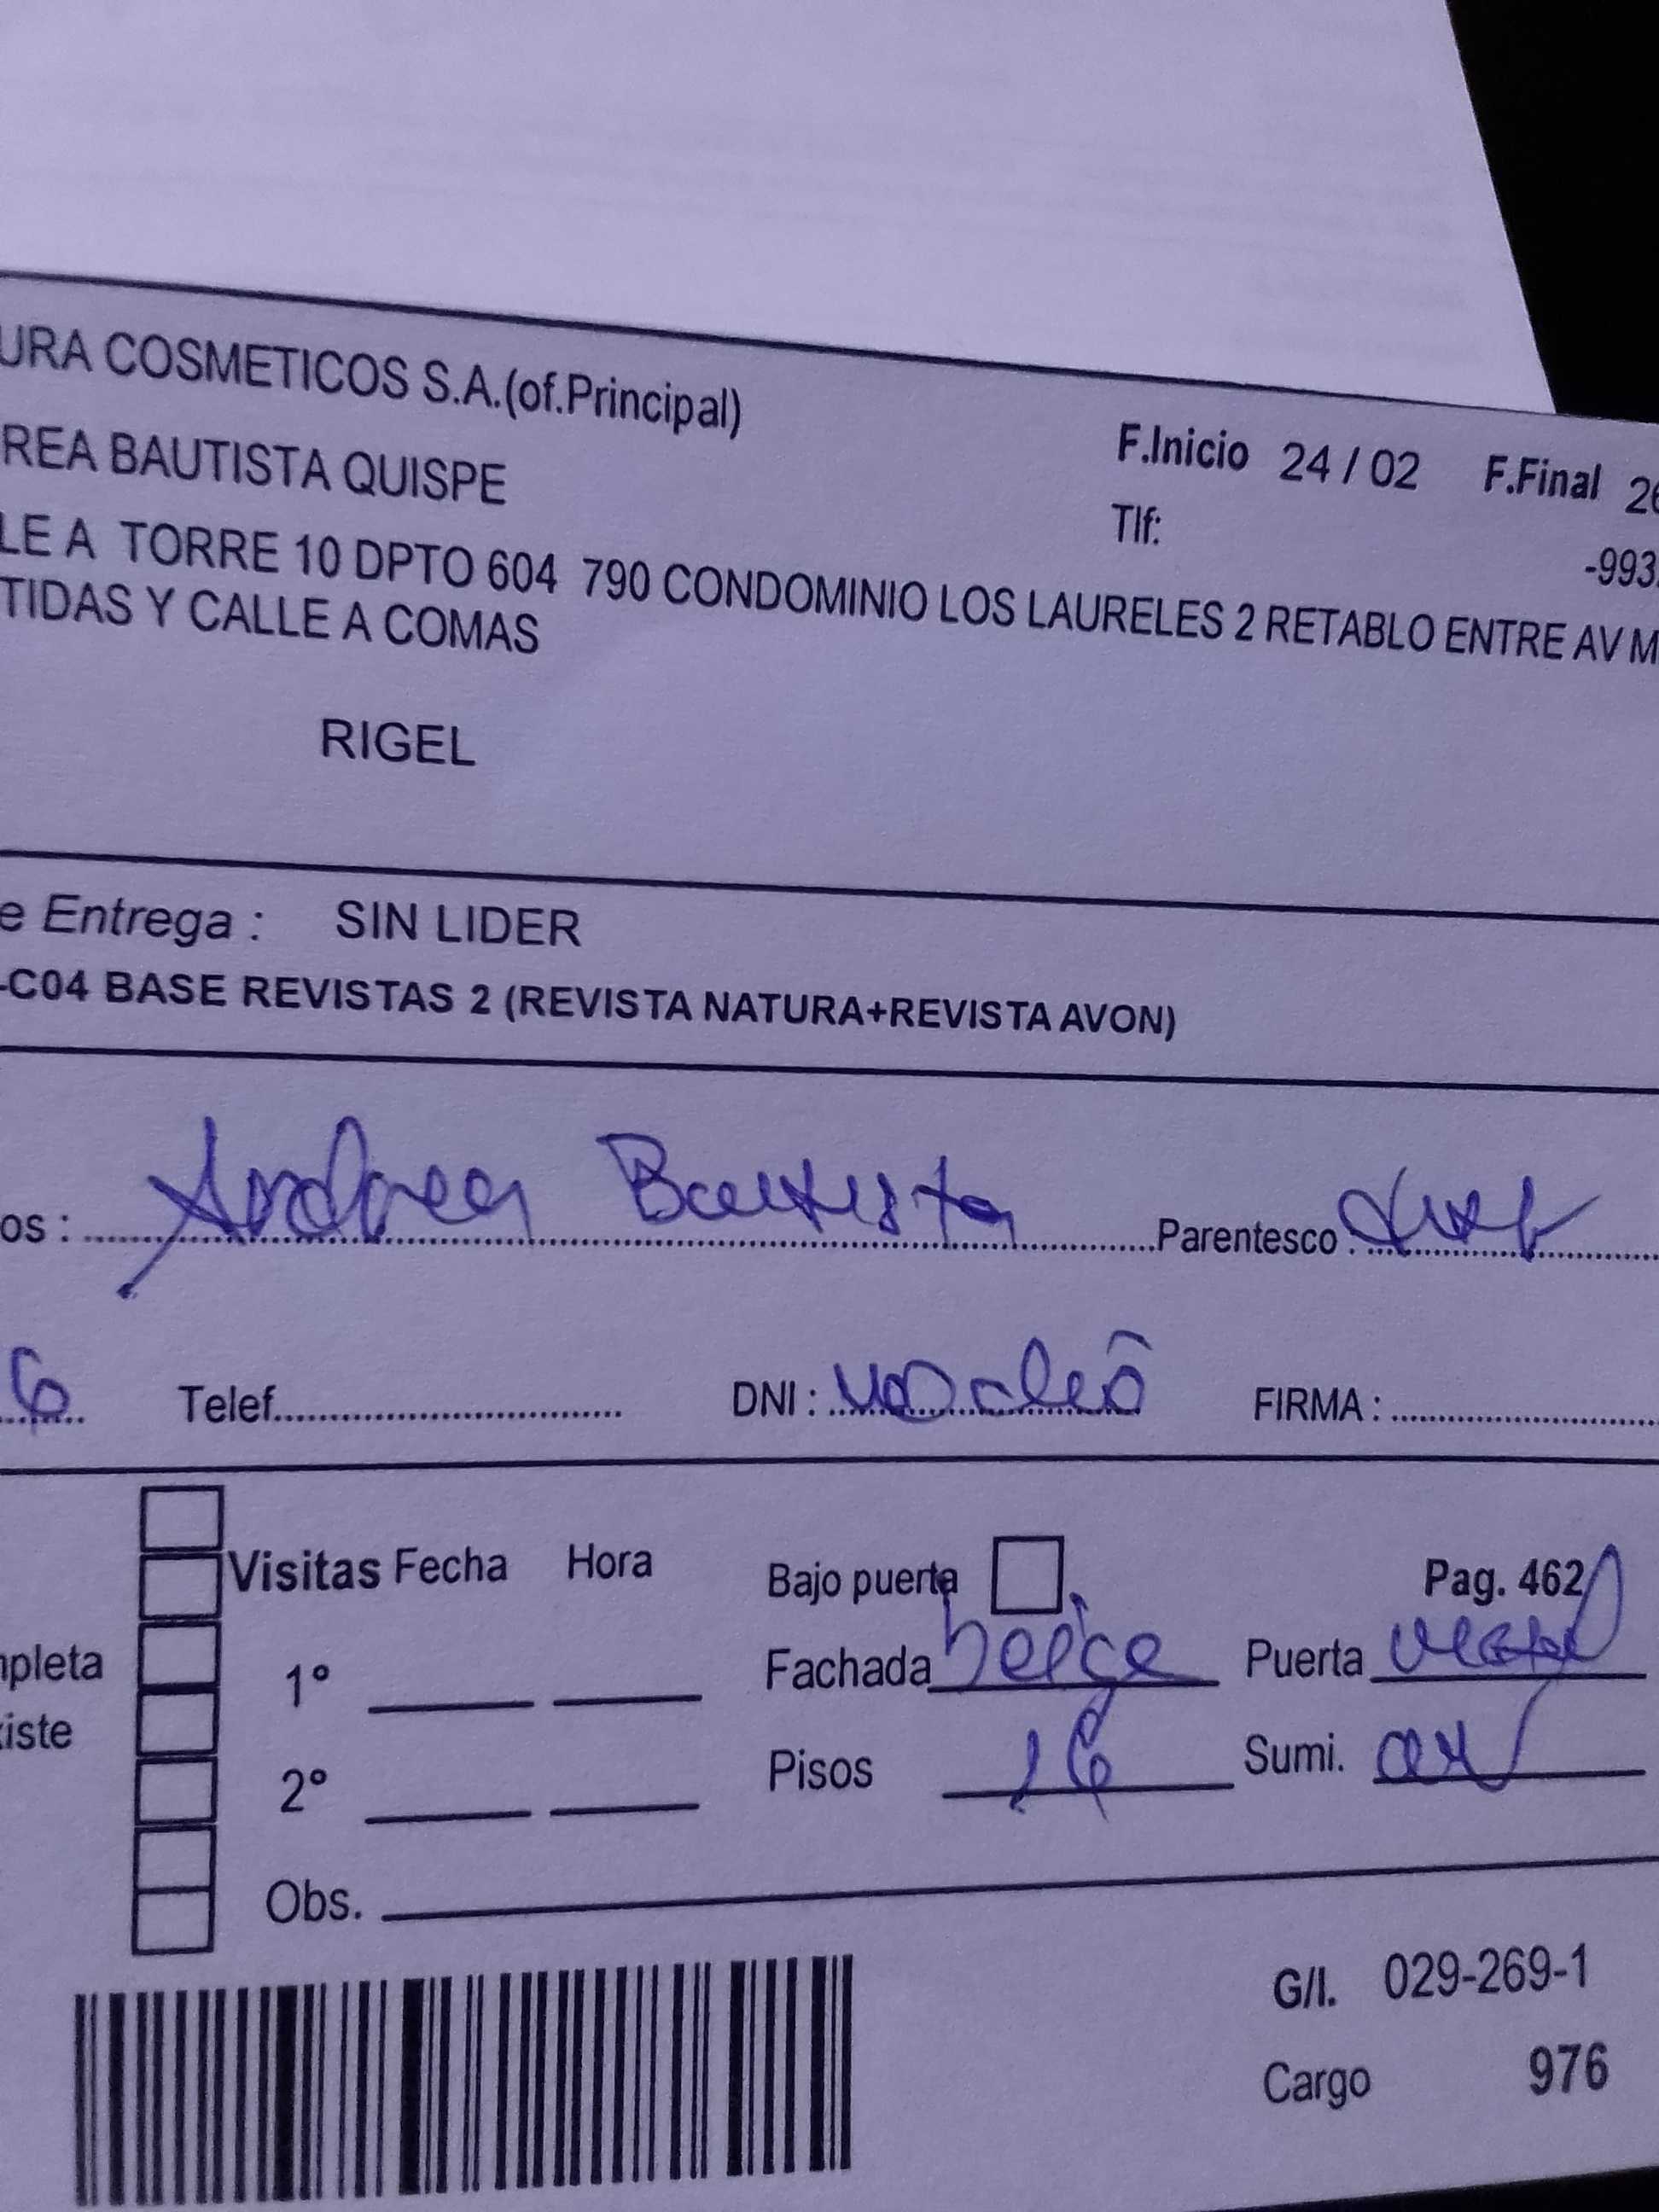 URA COSMETICOS S.A.(of.Principal)
F.Inicio 24 / 02 F.Final 26
REA BAUTISTA QUISPE
Tlf: -993
LE A TORRE 10 DPTO 604 790 CONDOMINIO LOS LAURELES 2 RETABLO ENTRE AV M
TIDAS Y CALLE A COMAS
RIGEL
e Entrega : SIN LIDER
-C04 BASE REVISTAS 2 (REVISTA NATURA+REVISTA AVON)
os : Andrea Bautista Parentesco :
6 Telef. DNI : FIRMA :
Visitas Fecha Hora Bajo puerta Pag. 462
mpleta 1° Fachada beige Puerta
xiste 2° Pisos 16 Sumi.
Obs.
G/I. 029-269-1
Cargo 976